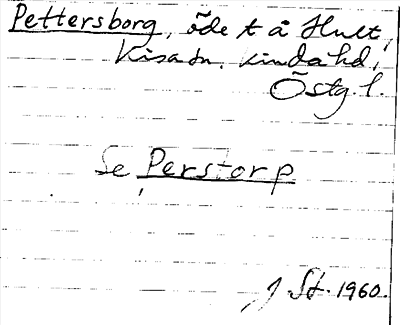 Pettersborg, öde t å Hult,
Kisa sn. Kinda hd,
Östg. l.
Se Perstorp
J. St. 1960.